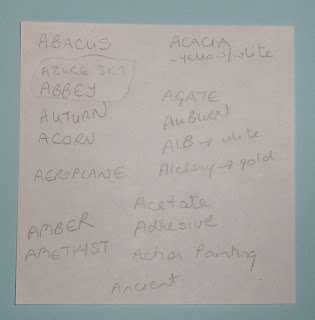 ABACUS
AZURE SKY
ABBEY
AUTUMN
ACORN
AEROPLANE
AMBER
AMETHYST
ACACIA
-yellow/white
AGATE
AUBURN
ALB → white
Alchemy → gold
Acetate
Adhesive
Action Painting
Ancient